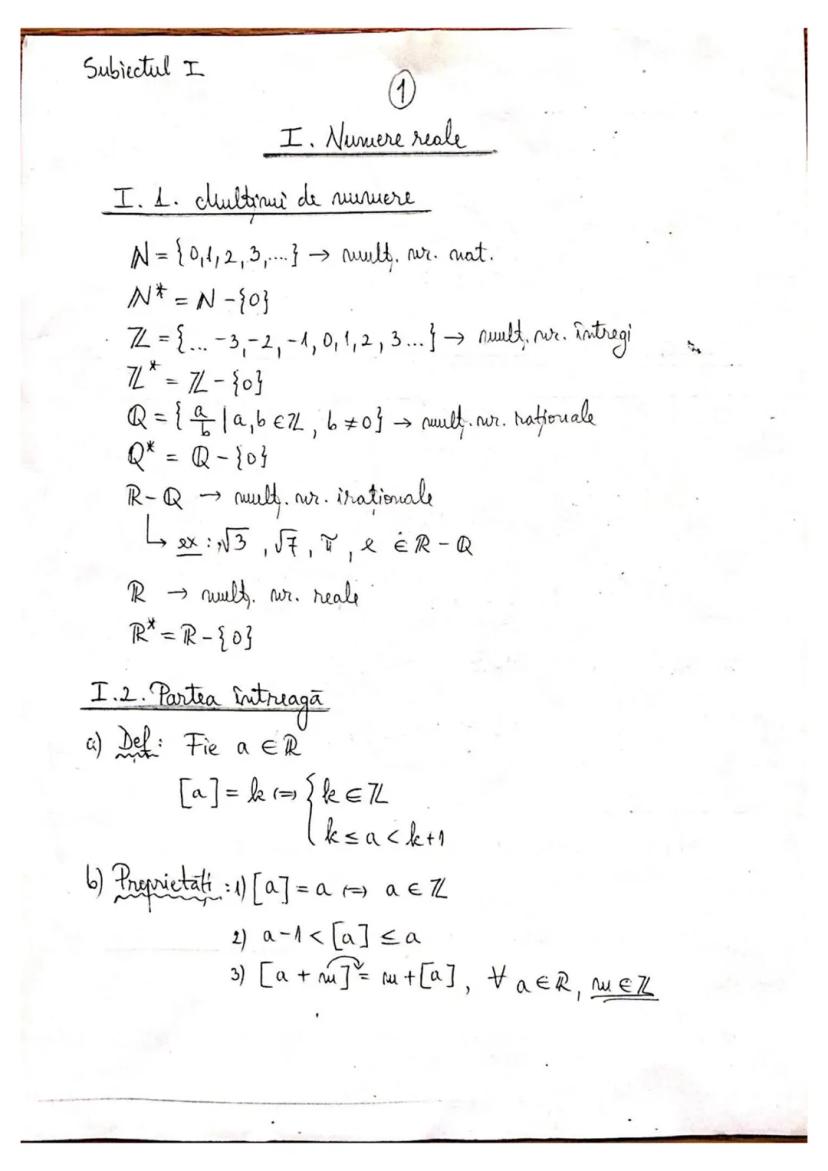 Subiectul I
1
I. Numere reale
I. 1. Mulțimi de numere
ℕ = {0,1,2,3,....} → mulț. nr. nat.
ℕ* = ℕ -{0}
ℤ = {... -3,-2,-1,0,1,2,3...} → mulț. nr. întregi
ℤ* = ℤ -{0}
ℚ = { a/b | a,b ∈ ℤ, b ≠ 0} → mulț. nr. raționale
ℚ* = ℚ -{0}
ℝ-ℚ → mulț. nr. iraționale
↳ ex: √3, √7, π, e ∈ ℝ - ℚ
ℝ → mulț. nr. reale
ℝ* = ℝ -{0}
I.2. Partea întreagă
a) Def: Fie a ∈ ℝ
[a] = k ⇔ { k ∈ ℤ
k ≤ a < k+1
b) Proprietăți: 1) [a] = a ⇔ a ∈ ℤ
2) a-1 < [a] ≤ a
3) [a + m] = m + [a], ∀ a ∈ ℝ, m ∈ ℤ